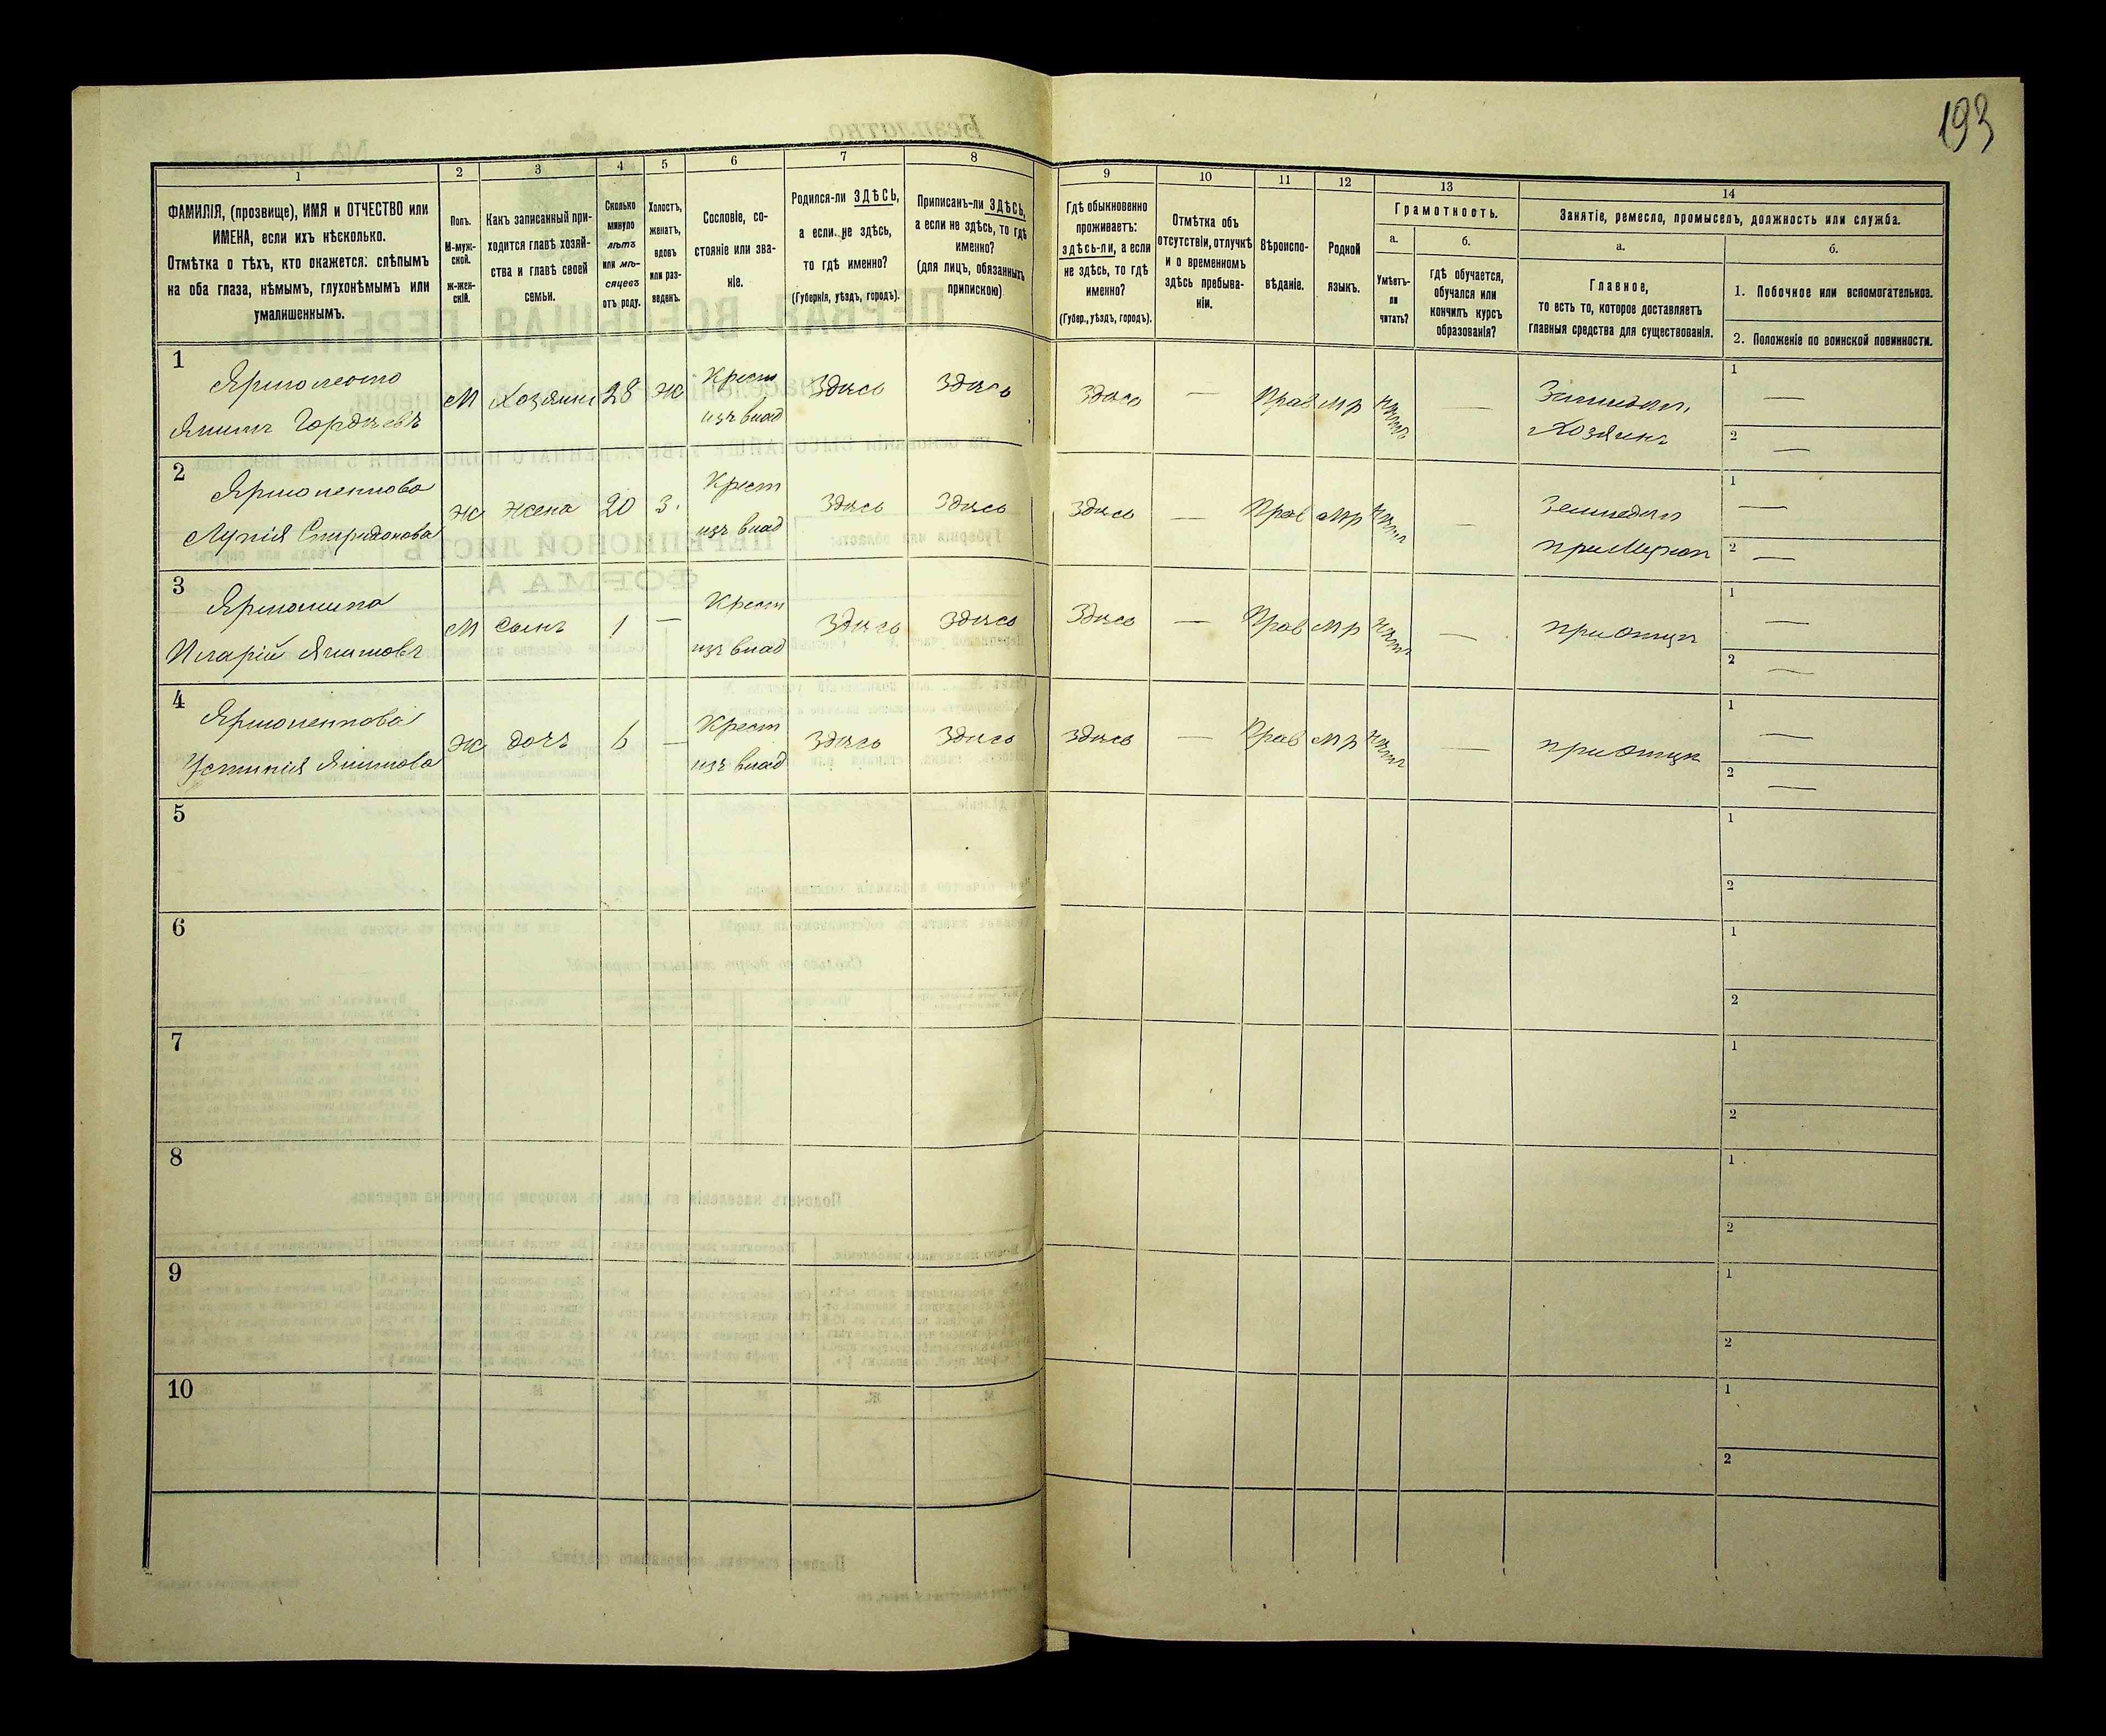 193
1
ФАМИЛІЯ, (прозвище), ИМЯ и ОТЧЕСТВО или
ИМЕНА, если ихъ нѣсколько.
Отмѣтка о тѣхъ, кто окажется: слѣпымъ
на оба глаза, нѣмымъ, глухонѣмымъ или
умалишеннымъ.
2
Полъ.
М-муж-
ской.
Ж-жен-
скій.
3
Какъ записанный при-
ходится главѣ хозяй-
ства и главѣ своей
семьи.
4
Сколько
минуло
лѣтъ
или мѣ-
сяцевъ
отъ роду.
5
Холостъ,
женатъ,
вдовъ
или раз-
веденъ.
6
Сословіе, со-
стояніе или зва-
ніе.
7
Родился-ли ЗДѢСЬ,
а если не здѣсь,
то гдѣ именно?
(Губернія, уѣздъ, городъ).
8
Приписанъ-ли ЗДѢСЬ,
а если не здѣсь, то гдѣ
именно?
(для лицъ, обязанныхъ
припискою)
9
Гдѣ обыкновенно
проживаетъ:
здѣсь-ли, а если
не здѣсь, то гдѣ
именно?
(Губер., уѣздъ, городъ).
10
Отмѣтка объ
отсутствіи, отлучкѣ
и о временномъ
здѣсь пребыва-
ніи.
11
Вѣроиспо-
вѣданіе.
12
Родной
языкъ.
13
Грамотность.
а.
Умѣетъ-
ли
читать?
б.
гдѣ обучается,
обучался или
кончилъ курсъ
образованія?
14
Занятіе, ремесло, промыселъ, должность или служба.
а.
Главное,
то есть то, которое доставляетъ
главныя средства для существованія.
б.
1. Побочное или вспомогательное.
2. Положеніе по воинской повинности.
1
Якимъ Гордѣевъ
М Хозяинъ 28 Ж Крест изъ влад Здѣсь Здѣсь Здѣсь — Прав мр нѣтъ — Земледѣл. Хозяинъ
1 —
2 —
2
Спиридонова
Ж жена 20 З. Крест изъ влад Здѣсь Здѣсь Здѣсь — Прав мр нѣтъ — Земледѣл при
1 —
2 —
3
Иларій Якимовъ
М сынъ 1 — Крест изъ влад Здѣсь Здѣсь Здѣсь — Прав мр нѣтъ — при отцѣ
1 —
2 —
4
Устинія Якимова
Ж дочь 6 — Крест изъ влад Здѣсь Здѣсь Здѣсь — Прав мр нѣтъ — при отцѣ
1 —
2 —
5
1
2
6
1
2
7
1
2
8
1
2
9
1
2
10
1
2